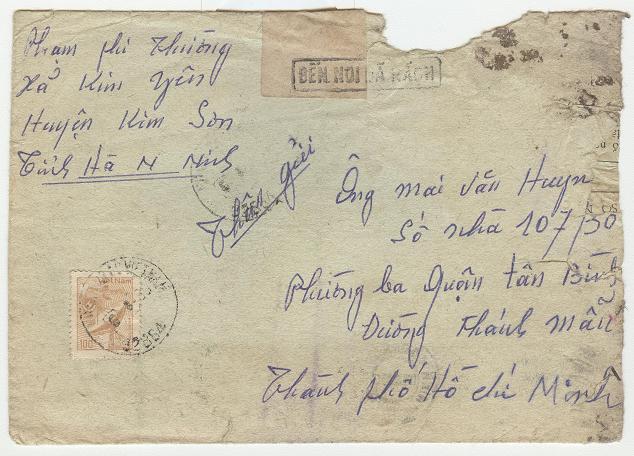 Phạm phi Thường
Xả Kim Yên
Huyện Kim Sơn
Tỉnh Hà N Ninh
ĐẾN NƠI ĐÃ RÁCH
Thân gửi
Ông mai Văn Huyn
Số nhà 107/30
Phường ba Quận tân Bình
Đường Thánh mẫu
Thành phố Hồ chí Minh
VIỆT NAM
100